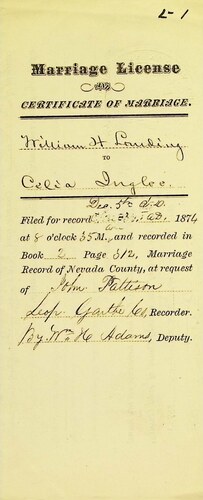 L-1
Marriage License
AND
CERTIFICATE OF MARRIAGE.
William H.
TO
Celia Inglee.
Dec. 5th A.D.
Filed for record A.D. 1874
at 8 o'clock 35 M., and recorded in
Book 2 Page 312, Marriage
Record of Nevada County, at request
of John Patteson
Geo. Co. Recorder.
By Wm H Adams, Deputy.